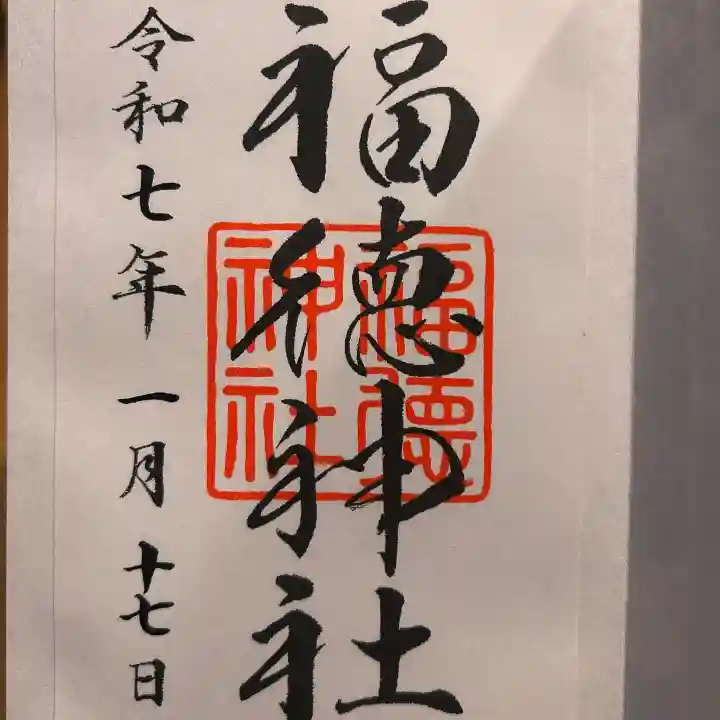 福徳神社
福徳
神社
令和七年一月十七日